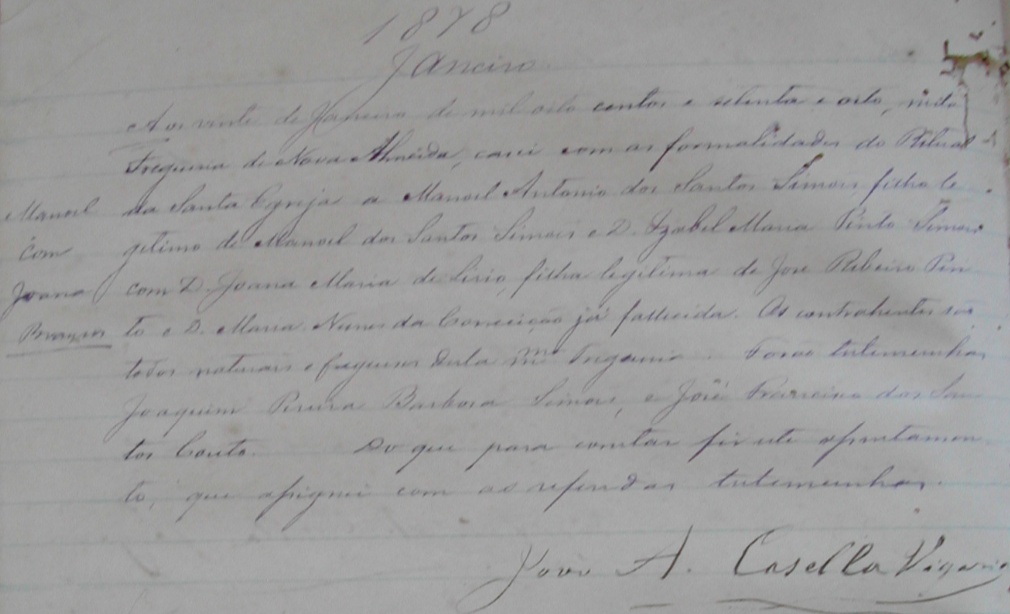 1878
Janeiro
Aos vinte de Janeiro de mil oito centos e setenta e oito, nesta
Freguesia de Nova Almeida, casei com as formalidades do Ritual
da Santa Egreja a Manoel Antonio dos Santos Simois filho le
gitimo de Manoel dos Santos Simois e D. Izabel Maria Pinto Simois
com D. Joana Maria de Lirio, filha legitima de José Ribeiro Pin
to e D. Maria Nunes da Conceição já fallecida. Os contrahentes são
todos naturais e fregueses desta mma Freguesia. Forão testemunhas
Joaquim Pereira Barbosa Simois, e José Francisco dos San
tos Couto. Do que para constar fiz este assentamen
to, que assignei com as referidas testemunhas.
João A. Casella Vigario
Manoel
com
Joana
Brancos